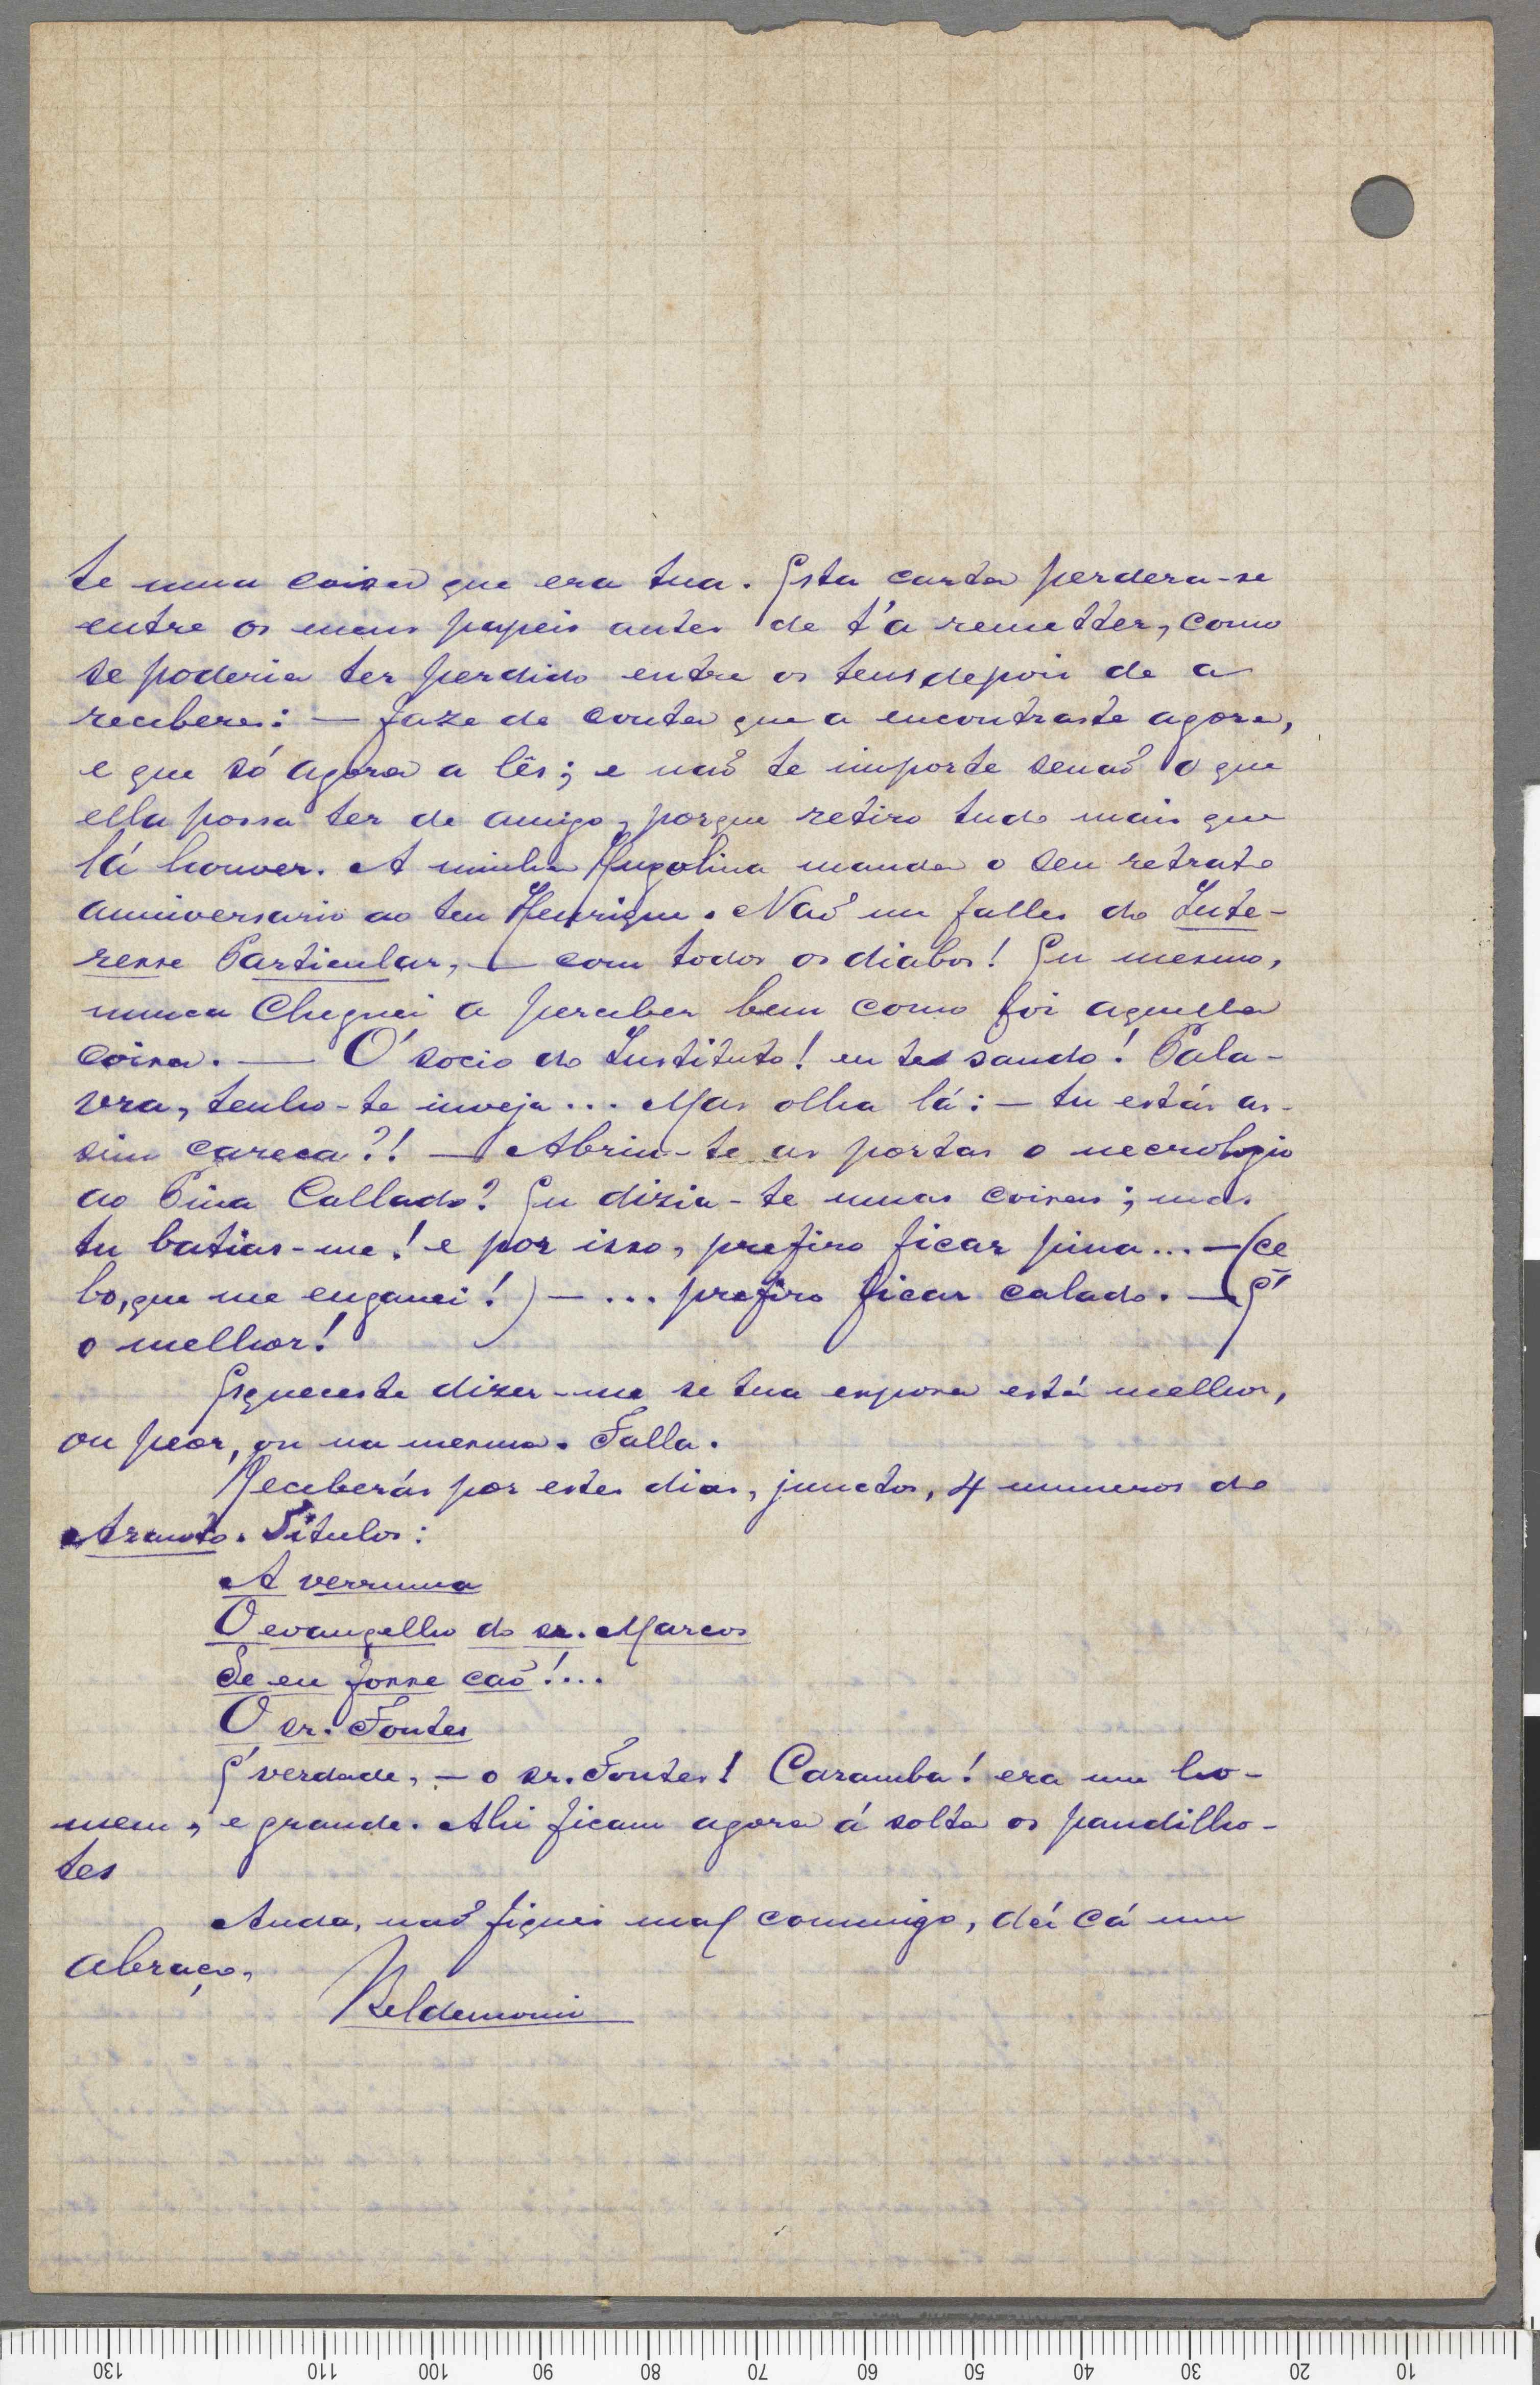 te numa coisa que era tua. Esta carta perdera-se
entre os meus papeis antes de t'a remetter, como
se poderia ter perdido entre os teus depois de a
receberes: — faze de conta que a encontraste agora,
e que só agora a lês; e naõ te importe senaõ o que
ella possa ter de amigo, porque retiro tudo mais que
lá houver. A minha Hugolina manda o seu retrato
anniversario ao teu Henrique. Naõ me falles do Inte-
resse Particular, — com todos os diabos! Eu mesmo,
nunca cheguei a perceber bem como foi aquella
coisa. — O' socio do Instituto! eu te saudo! Pala-
vra, tenho-te inveja... Mas olha lá: — tu estás as-
sim careca?! — Abriu-te as portas o necrologio
ao Pina Callado? Eu dizia-te umas coisas; mas
tu batias-me! e por isso, prefiro ficar pina... — (ce
bo, que me enganei!) — ... prefiro ficar calado. — E'
o melhor!
Esqueceste dizer-me se tua esposa está melhor,
ou peor, ou na mesma. Falla.
Receberás por estes dias, junctos, 4 numeros do
Arauto. Titulos:
A verruma
O evangelho do sr. Marcos
Se eu fosse caõ!...
O sr. Fontes
E' verdade, — o sr. Fontes! Caramba! era um ho-
mem, e grande. Ahi ficam agora á solta os pandilho-
tes
Anda, naõ fiques mal commigo, dá cá um
abraço,
Beldemonio
130 110 100 90 80 70 60 50 40 30 20 10